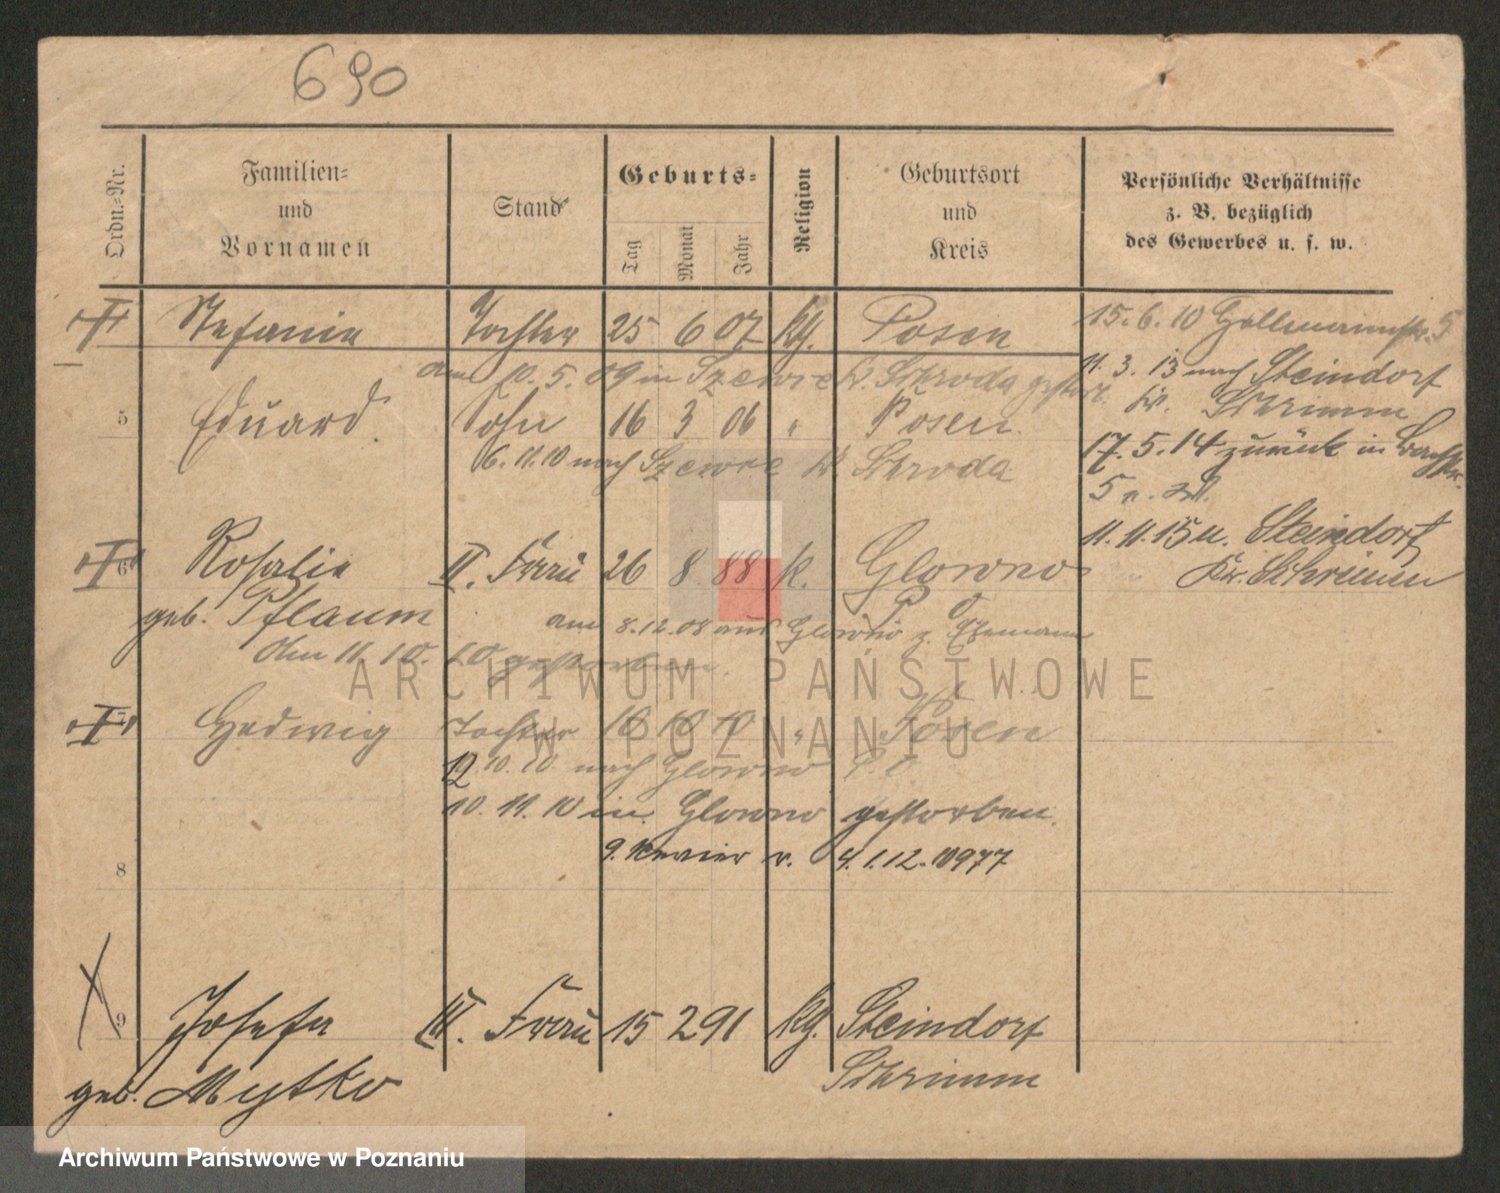 690
Ordn.-Nr.
Familien-
und
Vornamen
Stand
Geburts-
Tag
Monat
Jahr
Religion
Geburtsort
und
Kreis
Persönliche Verhältnisse
z. B. bezüglich
des Gewerbes u. s. w.
Stefania Tochter 25 6 07 kg. Posen
15. 6. 10
am 10. 5. 09 in Szewce Kr. Schroda gestorb.
11. 3. 13 nach Steindorf
Kr. Schrimm
5 Eduard Sohn 16 3 06 " Posen.
6. 11. 10 nach Szewce Kr. Schroda
17. 5. 14 zurück in
5
11. 11. 15 n. Steindorf
Kr. Schrimm
6 Rosalie II. Frau 26 8 88 k. Glowno
geb. Pflaum
am 8. 12. 08 aus Glowno z. Ehemann
den 11. 10. 10 gestorben.
Hedwig Tochter 10 10 10 " Posen
12 10. 10. nach Glowno
10. 11. 10 in Glowno gestorben.
9. Revier v. 4. 1. 12. 10977
8
9 Josefa III. Frau 15 2 91 kg. Steindorf
geb. Mytko
Schrimm
ARCHIWUM PAŃSTWOWE
W POZNANIU
Archiwum Państwowe w Poznaniu